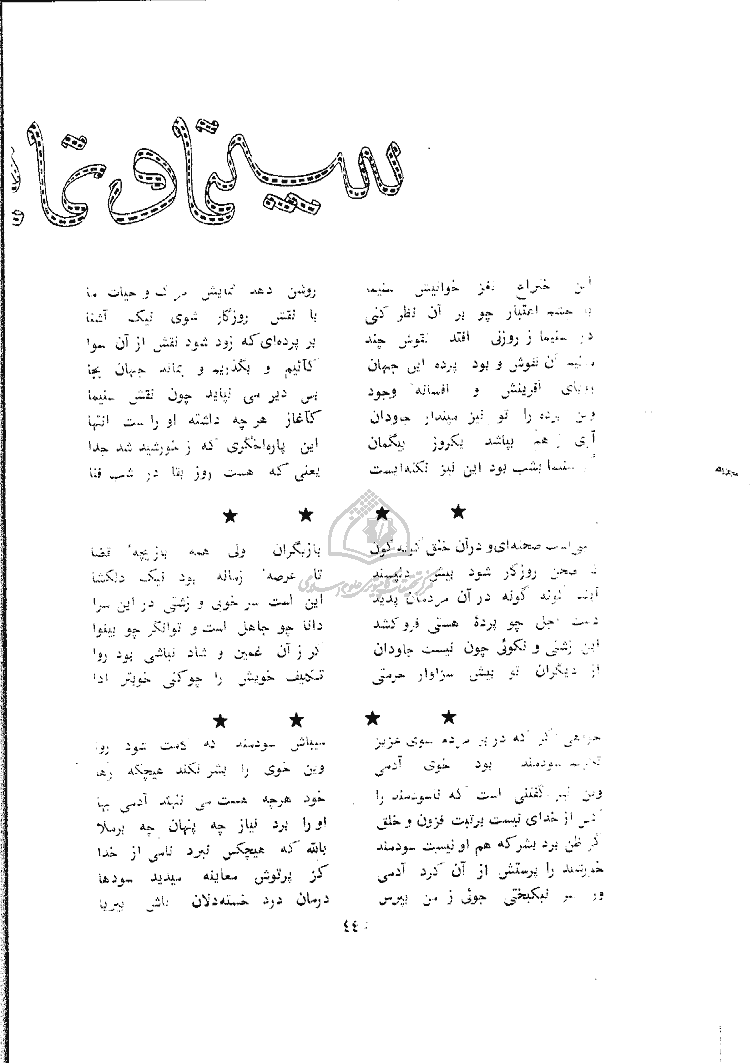 سینما و تا
این اختراع نغز خوانیش سنیما روشن دهد نمایش مرگ و حیات ما
با چشم اعتبار چو بر آن نظر کنی با نقش روزگار شوی نیک آشنا
در سنیما ز روزنی افتد نقوش چند بر پرده‌ای که زود شود نقش از آن سوا
مائیم آن نقوش و بود پرده این جهان کآئیم و بگذریم و بماند جهان بجا
آفرینش و افسانهٔ وجود بس دیر می نپاید چون نقش سنیما
وین پرده را تو نیز مپندار جاودان کآغاز هرچه داشته او راست انتها
آری ز هم بپاشد یکروز بیگمان این پاره‌اخگری که ز خورشید شد جدا
سنیما بشب بود این نیز نکته‌ایست یعنی که هست روز بقا در شب فنا
★ ★ ★ ★
صحنه‌ای و در آن خلق گونه گون بازیگران ولی همه بازیچهٔ قضا
تا صحن روزگار شود بیش دلپسند تا عرصهٔ زمانه بود نیک دلگشا
آیند گونه گونه در آن مردمان پدید این است سر خوبی و زشتی در این سرا
دست اجل چو پردهٔ هستی فرو کشد دانا چو جاهل است و توانگر چو بینوا
این زشتی و نکوئی چون نیست جاودان گر ز آن غمین و شاد نباشی بود روا
از دیگران تو بیش سزاوار حرمتی تکلیف خویش را چو کنی خوبتر ادا
★ ★ ★ ★
خواهی اگر که در بر مردم شوی عزیز میباش سودمند که کامت شود روا
سودمند بود خوی آدمی وین خوی را بشر نکند هیچگه رها
وین نیز گفتنی است که ناسودمند را خود هرچه هست می ننهد آدمی بها
کس از خدای نیست برتبت فزون و خلق او را برد نیاز چه پنهان چه برملا
گر ظن برد بشر که هم او نیست سودمند بالله که هیچکس نبرد نامی از خدا
خورشید را پرستش از آن کرد آدمی کز پرتوش معاینه میدید سودها
ور سر نیکبختی جوئی ز من بپرس درمان درد خسته‌دلان باش بیریا
٤٤